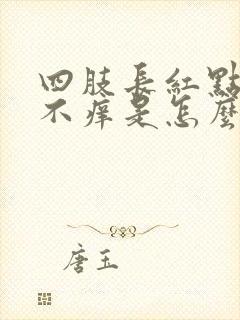 四肢長紅點
不痒是怎麼
唐玉